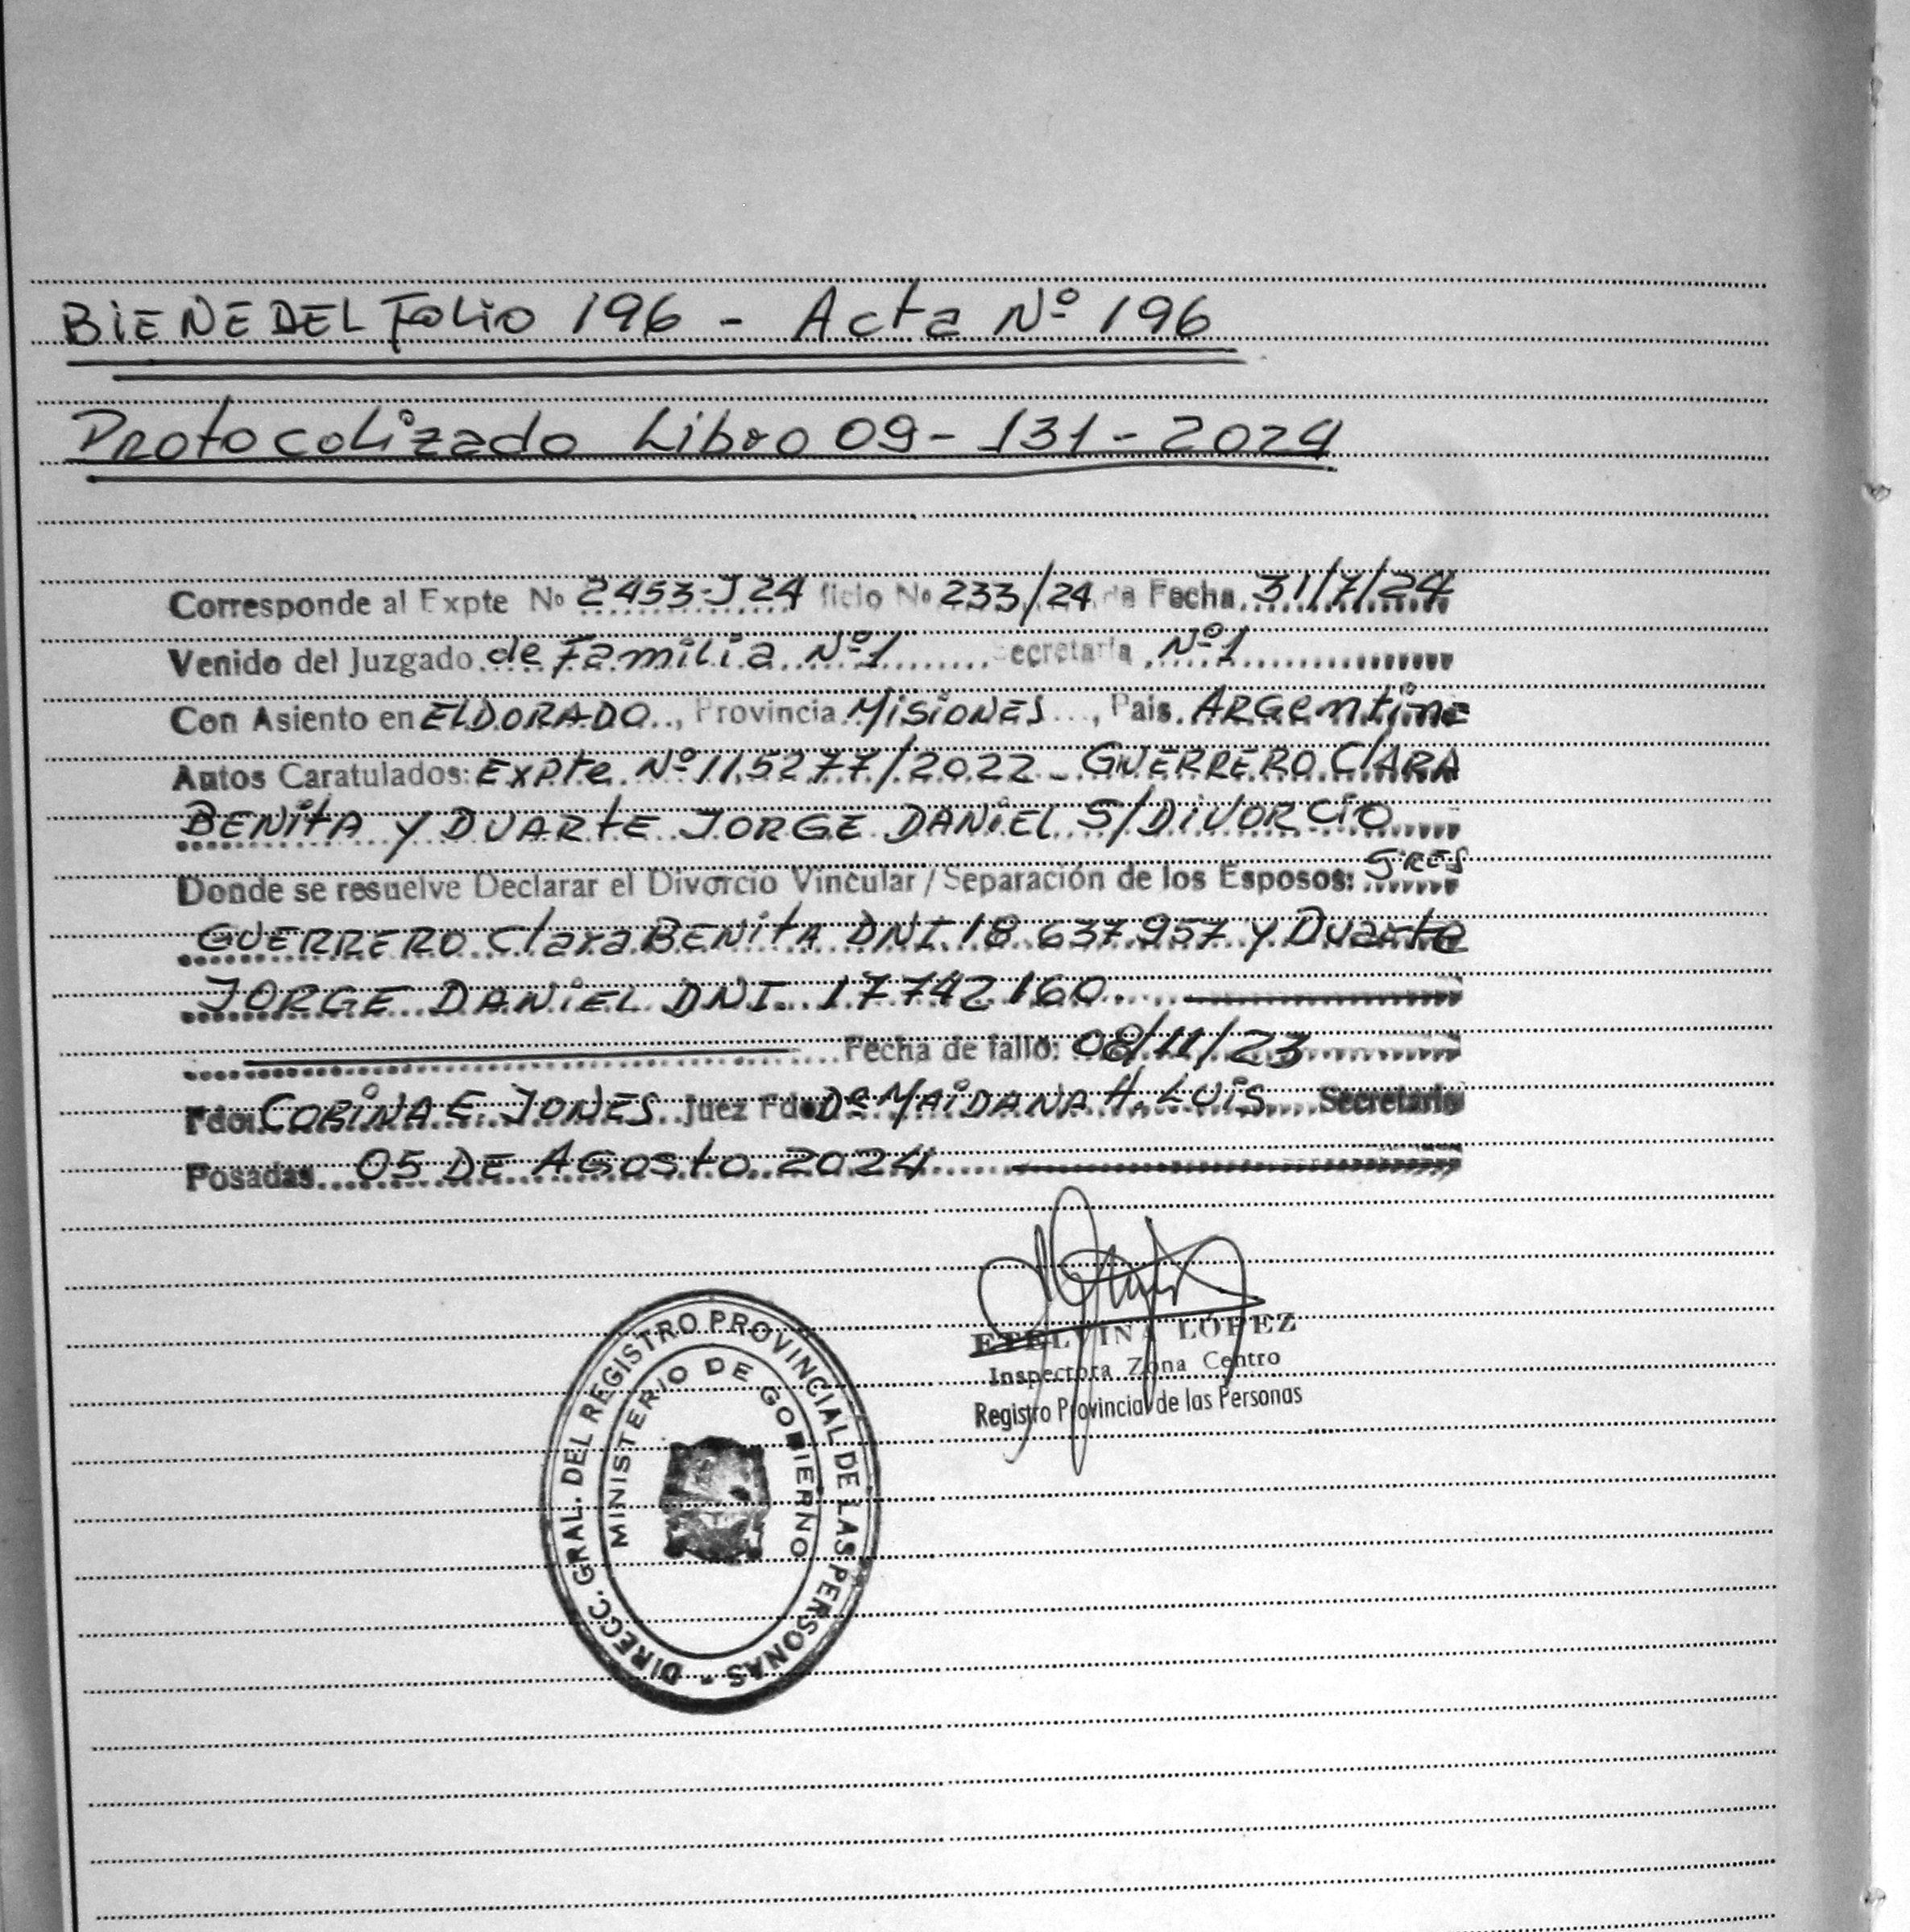 BIENE DEL Folio 196 - Acta Nº 196
Protocolizado Libro 09 - 131 - 2024
Corresponde al Expte Nº 2453-J24 ficio Nº 233/24 de Fecha 31/7/24
Venido del Juzgado de Familia Nº1 ecretaria Nº1
Con Asiento en ELDORADO, Provincia MISIONES, Pais ARGentina
Autos Caratulados: Expte Nº 115277/2022 - GUERRERO CLARA
BENITA Y DUARTE JORGE DANIEL S/DIVORCIO
Donde se resuelve Declarar el Divorcio Vincular / Separación de los Esposos: Sres
GUERRERO Clara BENITA DNI 18 637 957 y Duarte
JORGE DANIEL DNI. 17742160
Fecha de fallo: 08/11/23
Fdo: CORINA E. JONES Juez Fdo Dº MAIDANA H. LUIS Secretario
Posadas 05 DE AGosto 2024
ETELVINA LÓPEZ
Inspectora Zona Centro
Registro Provincial de las Personas
DIRECC. GRAL. DEL REGISTRO PROVINCIAL DE LAS PERSONAS -
MINISTERIO DE GOBIERNO